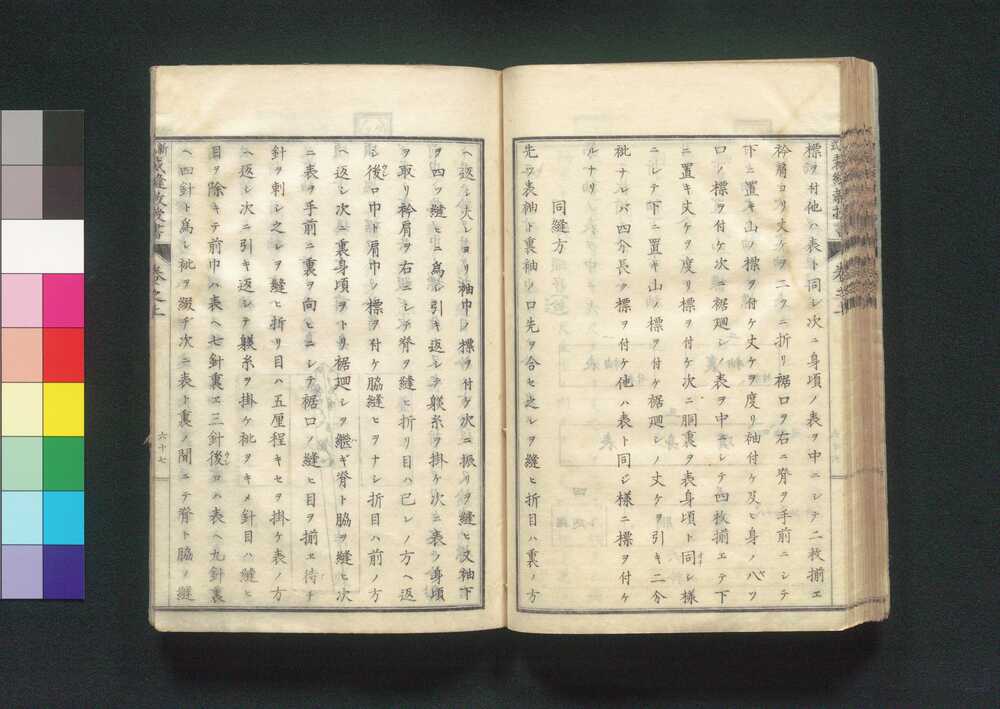 標ヲ付他ハ表ト同レ次ニ身頃ノ表ヲ中ニシテ二枚揃エ
衿肩ヨリ丈ケヲ二ツニ折リ裾口ヲ右ニ脊ヲ手前ニシテ
下ニ置キ山ノ標ヲ付ケ丈ケヲ度リ袖付ケ及ヒ身ノ八ツ
口ノ標ヲ付ケ次ニ裾廻シノ表ヲ中ニシテ四枚揃エテ下
ニ置キ丈ケヲ度リ標ヲ付ケ次ニ胴裏ヲ表身頃ト同シ様
ニシテ下ニ置キ山ノ標ヲ付ケ裾廻シノ丈ケヲ引キ二分
袘ナレバ四分長ク標ヲ付ケ他ハ表ト同ジ様ニ標ヲ付ケ
ルナリ
同縫方
先ツ表袖ト裏袖ノ口先ヲ合セ之レヲ縫ヒ折目ハ裏ノ方
ヘ返シ夫レヨリ袖巾ノ標ヲ付ケ次ニ振リヲ縫ヒ又袖下
ヲ四ツ縫ヒニ為シ引キ返シテ躾糸ヲ掛ケ次ニ表ノ身頃
ヲ取リ衿肩ヲ右ニシテ脊ヲ縫ヒ折リ目ハ己レノ方ヘ返
シ後ロ巾ト肩巾ノ標ヲ付ケ脇縫ヒヲナシ折目ハ前ノ方
ヘ返シ次ニ裏身頃ヲトリ裾廻シヲ継ギ脊ト脇ヲ縫ヒ次
ニ表ヲ手前ニ裏ヲ向ヒニシテ裾口ノ縫ヒ目ヲ揃エ待チ
針ヲ刺シ之レヲ縫ヒ折リ目ハ五厘程キセヲ掛ケ表ノ方
ヘ返シ次ニ引キ返シテ躾糸ヲ掛ケ袘ヲキメ針目ハ縫ヒ
目ヲ除キテ前巾ハ表ヘ七針裏エ三針後ロハ表ヘ九針裏
ヘ四針ト為シ袘ヲ綴ヂ次ニ表ト裏ノ間ニテ脊ト脇ノ縫
裁縫教授書
巻之上
六十七